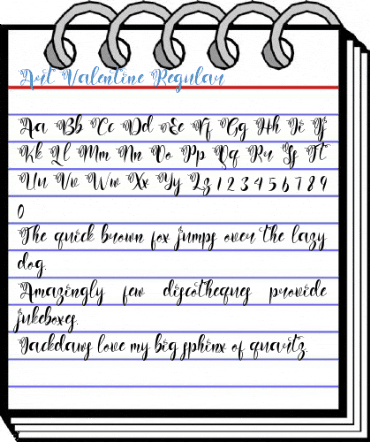 Art Valentine Regular
Aa Bb Cc Dd Ee Ff Gg Hh Ii Jj
Kk Ll Mm Nn Oo Pp Qq Rr Ss Tt
Uu Vv Ww Xx Yy Zz 1 2 3 4 5 6 7 8 9
0
The quick brown fox jumps over the lazy
dog.
Amazingly few discotheques provide
jukeboxes.
Jackdaws love my big sphinx of quartz.